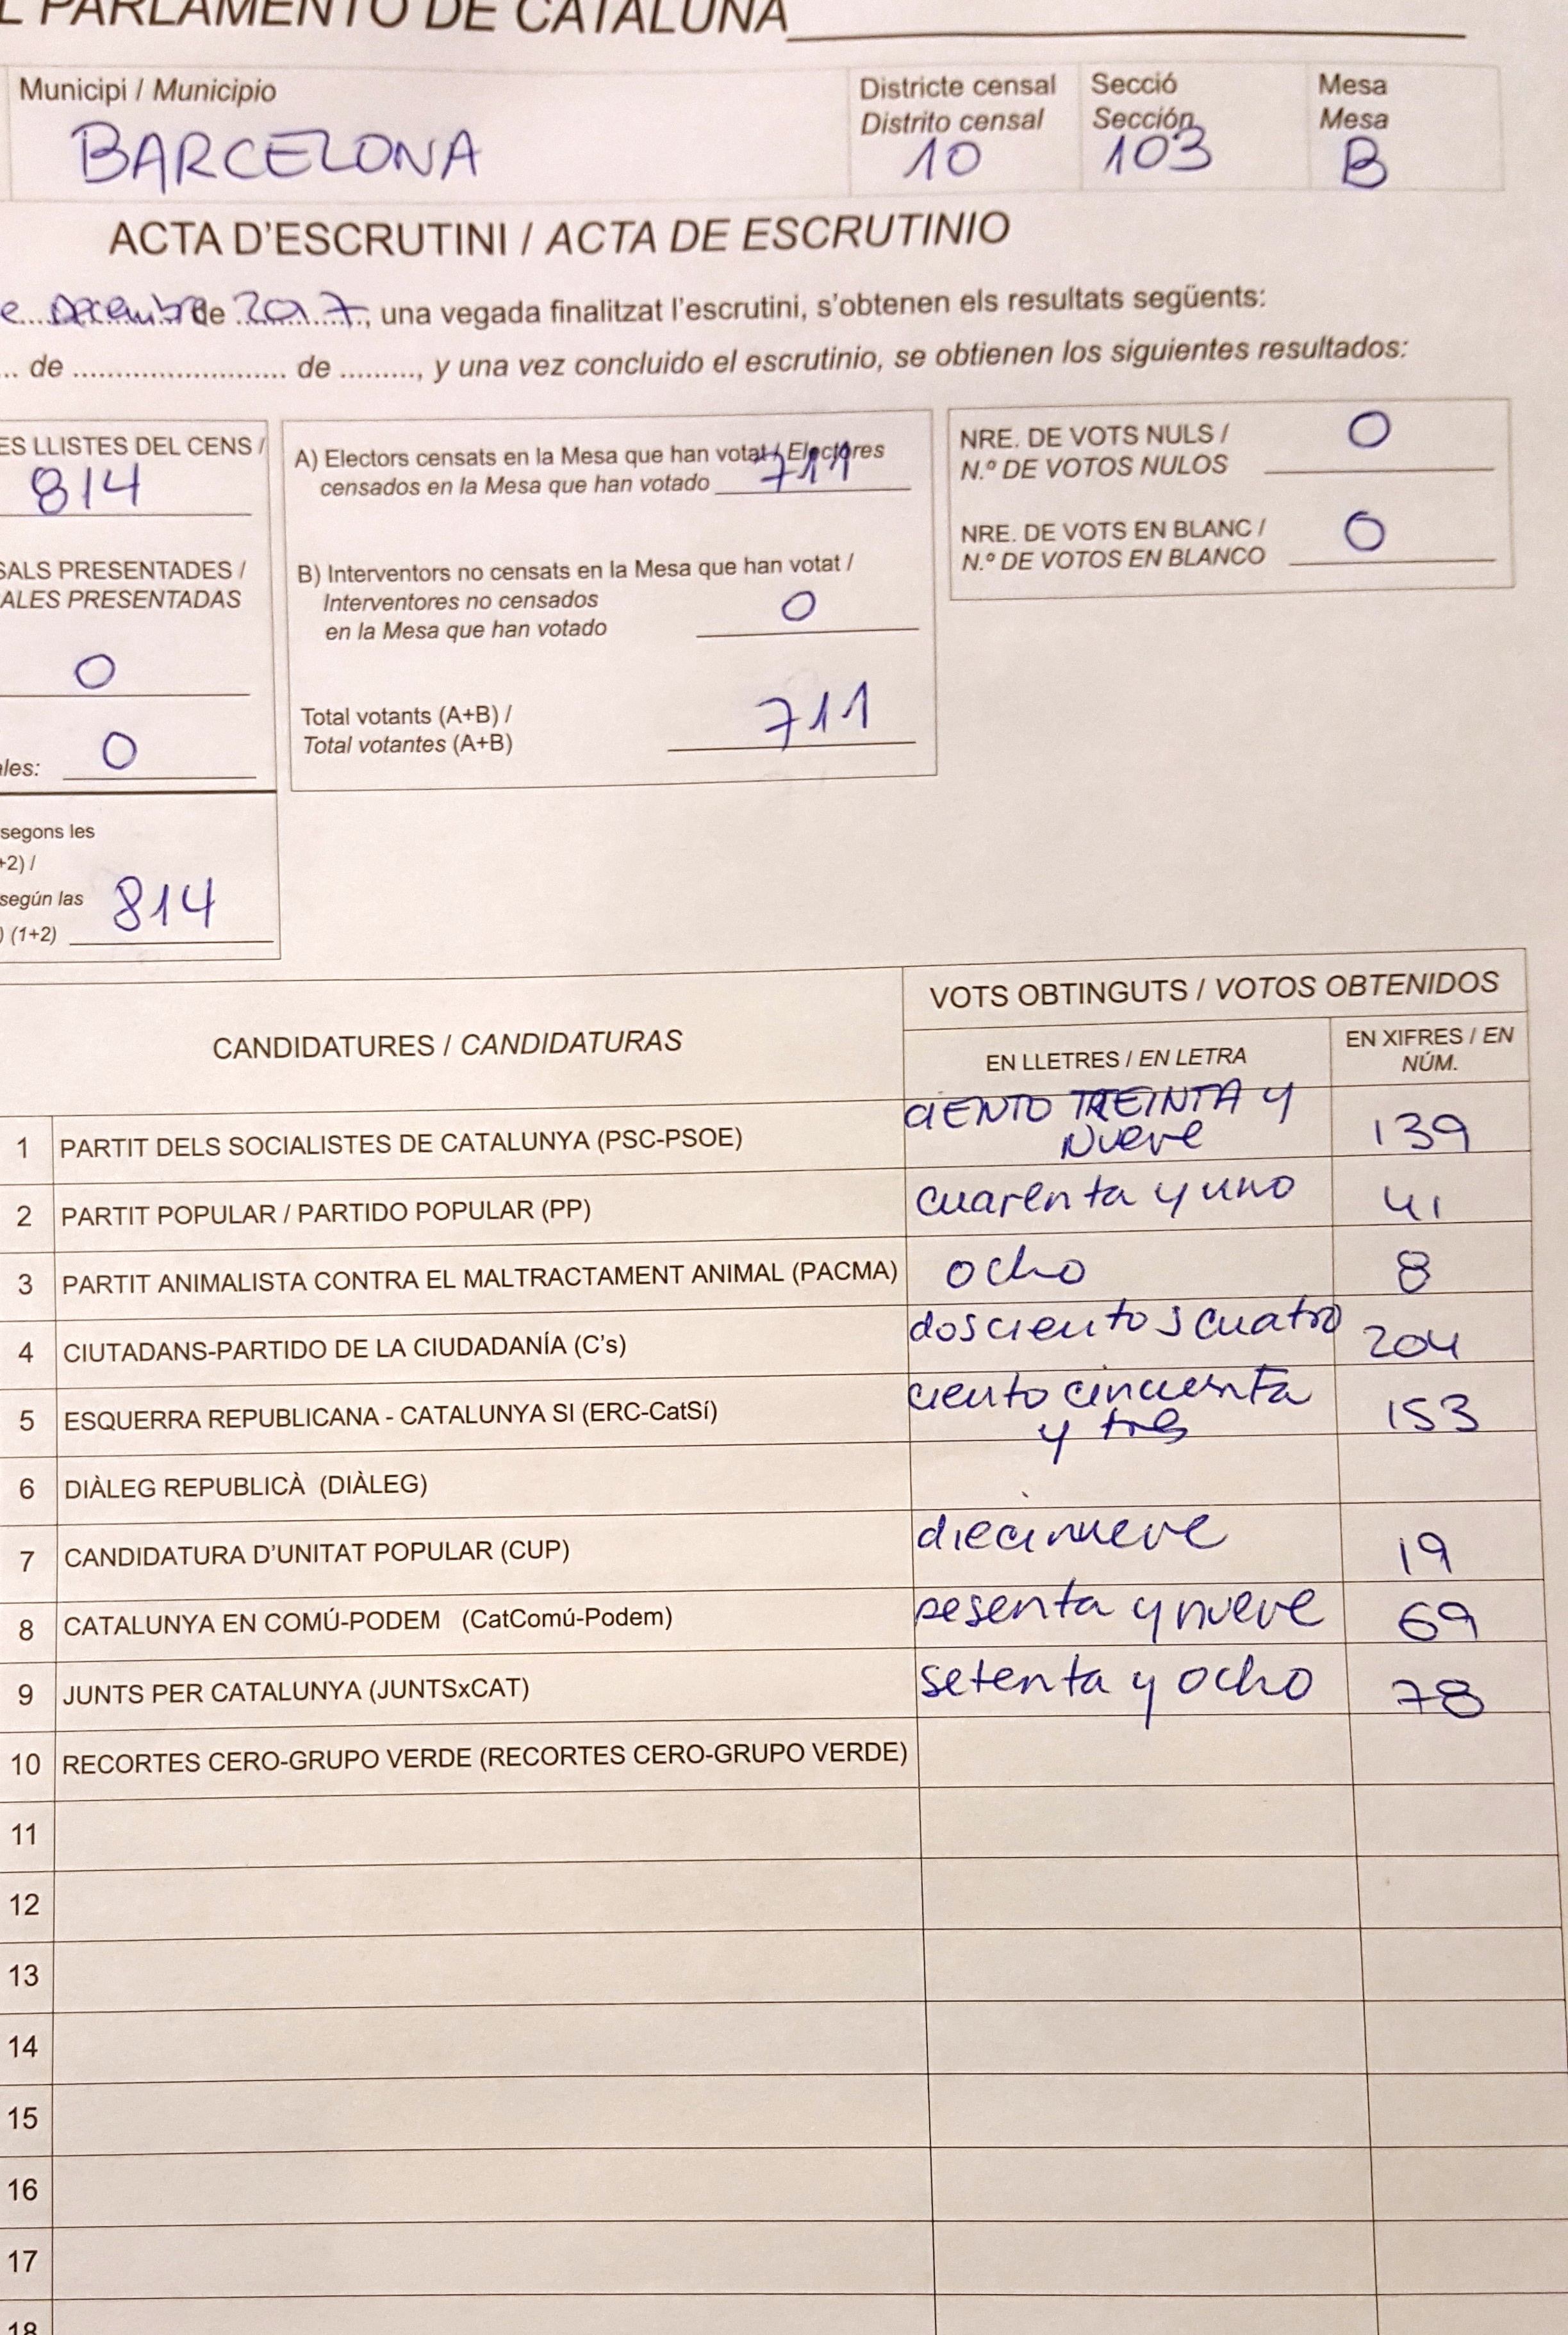 L PARLAMENTO DE CATALUÑA
Municipi / Municipio
BARCELONA
Districte censal
Distrito censal
10
Secció
Sección
103
Mesa
Mesa
B
ACTA D'ESCRUTINI / ACTA DE ESCRUTINIO
e Decembre de 2017, una vegada finalitzat l'escrutini, s'obtenen els resultats següents:
... de ........................ de ........., y una vez concluido el escrutinio, se obtienen los siguientes resultados:
ES LLISTES DEL CENS /
814
SALS PRESENTADES /
ALES PRESENTADAS
0
ales: 0
segons les
+2) /
según las
) (1+2) 814
A) Electors censats en la Mesa que han votat / Electores
censados en la Mesa que han votado 711
B) Interventors no censats en la Mesa que han votat /
Interventores no censados
en la Mesa que han votado 0
Total votants (A+B) /
Total votantes (A+B) 711
NRE. DE VOTS NULS /
N.º DE VOTOS NULOS 0
NRE. DE VOTS EN BLANC /
N.º DE VOTOS EN BLANCO 0
CANDIDATURES / CANDIDATURAS
VOTS OBTINGUTS / VOTOS OBTENIDOS
EN LLETRES / EN LETRA
EN XIFRES / EN
NÚM.
1 PARTIT DELS SOCIALISTES DE CATALUNYA (PSC-PSOE) CIENTO TREINTA Y
Nueve 139
2 PARTIT POPULAR / PARTIDO POPULAR (PP) cuarenta y uno 41
3 PARTIT ANIMALISTA CONTRA EL MALTRACTAMENT ANIMAL (PACMA) ocho 8
4 CIUTADANS-PARTIDO DE LA CIUDADANÍA (C's) doscientos cuatro 204
5 ESQUERRA REPUBLICANA - CATALUNYA SI (ERC-CatSí) ciento cincuenta
y tres 153
6 DIÀLEG REPUBLICÀ (DIÀLEG)
7 CANDIDATURA D'UNITAT POPULAR (CUP) diecinueve 19
8 CATALUNYA EN COMÚ-PODEM (CatComú-Podem) sesenta y nueve 69
9 JUNTS PER CATALUNYA (JUNTSxCAT) setenta y ocho 78
10 RECORTES CERO-GRUPO VERDE (RECORTES CERO-GRUPO VERDE)
11
12
13
14
15
16
17
18